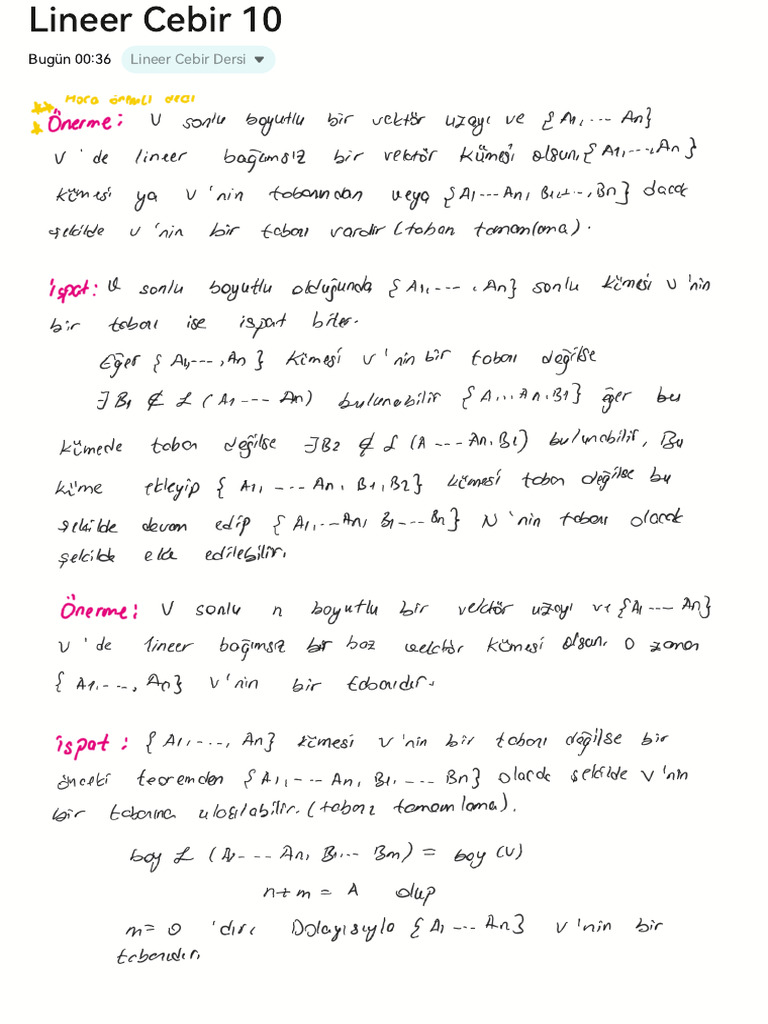 Lineer Cebir 10
Bugün 00:36 Lineer Cebir Dersi
Hoca önemli dedi
Önerme: V sonlu boyutlu bir vektör uzayı ve {A1, --- An}
V'de lineer bağımsız bir vektör kümesi olsun. {A1, ---, An}
kümesi ya V'nin tabanından veya {A1 --- An, B1, ---, Bn} olacak
şekilde V'nin bir tabanı vardır (taban tamamlama).
ispat: V sonlu boyutlu olduğunda {A1, --- , An} sonlu kümesi V'nin
bir tabanı ise ispat biter.
Eğer {A1, ---, An} kümesi V'nin bir tabanı değilse
∃ B1 ∉ L (A1 --- An) bulunabilir {A, ... An, B1} eğer bu
kümede taban değilse ∃ B2 ∉ L (A --- An, B1) bulunabilir, Bu
küme ekleyip {A1, --- An, B1, B2} kümesi taban değilse bu
şekilde devam edip {A1, --- An, B1 --- Bn} N'nin tabanı olacak
şekilde elde edilebilir.
Önerme: V sonlu n boyutlu bir vektör uzayı ve {A1 --- An}
V'de lineer bağımsız bir baz vektör kümesi olsun. O zaman
{A1, ---, An} V'nin bir tabanıdır.
ispat: {A1, ---, An} kümesi V'nin bir tabanı değilse bir
önceki teoremden {A1, --- An, B1, --- Bn} olacak şekilde V'nin
bir tabanına ulaşılabilir. (taban tamamlama).
boy L (A1 --- An, B1 --- Bm) = boy (V)
n+m = A olup
m = 0 'dır. Dolayısıyla {A1 --- An} V'nin bir
tabanıdır.